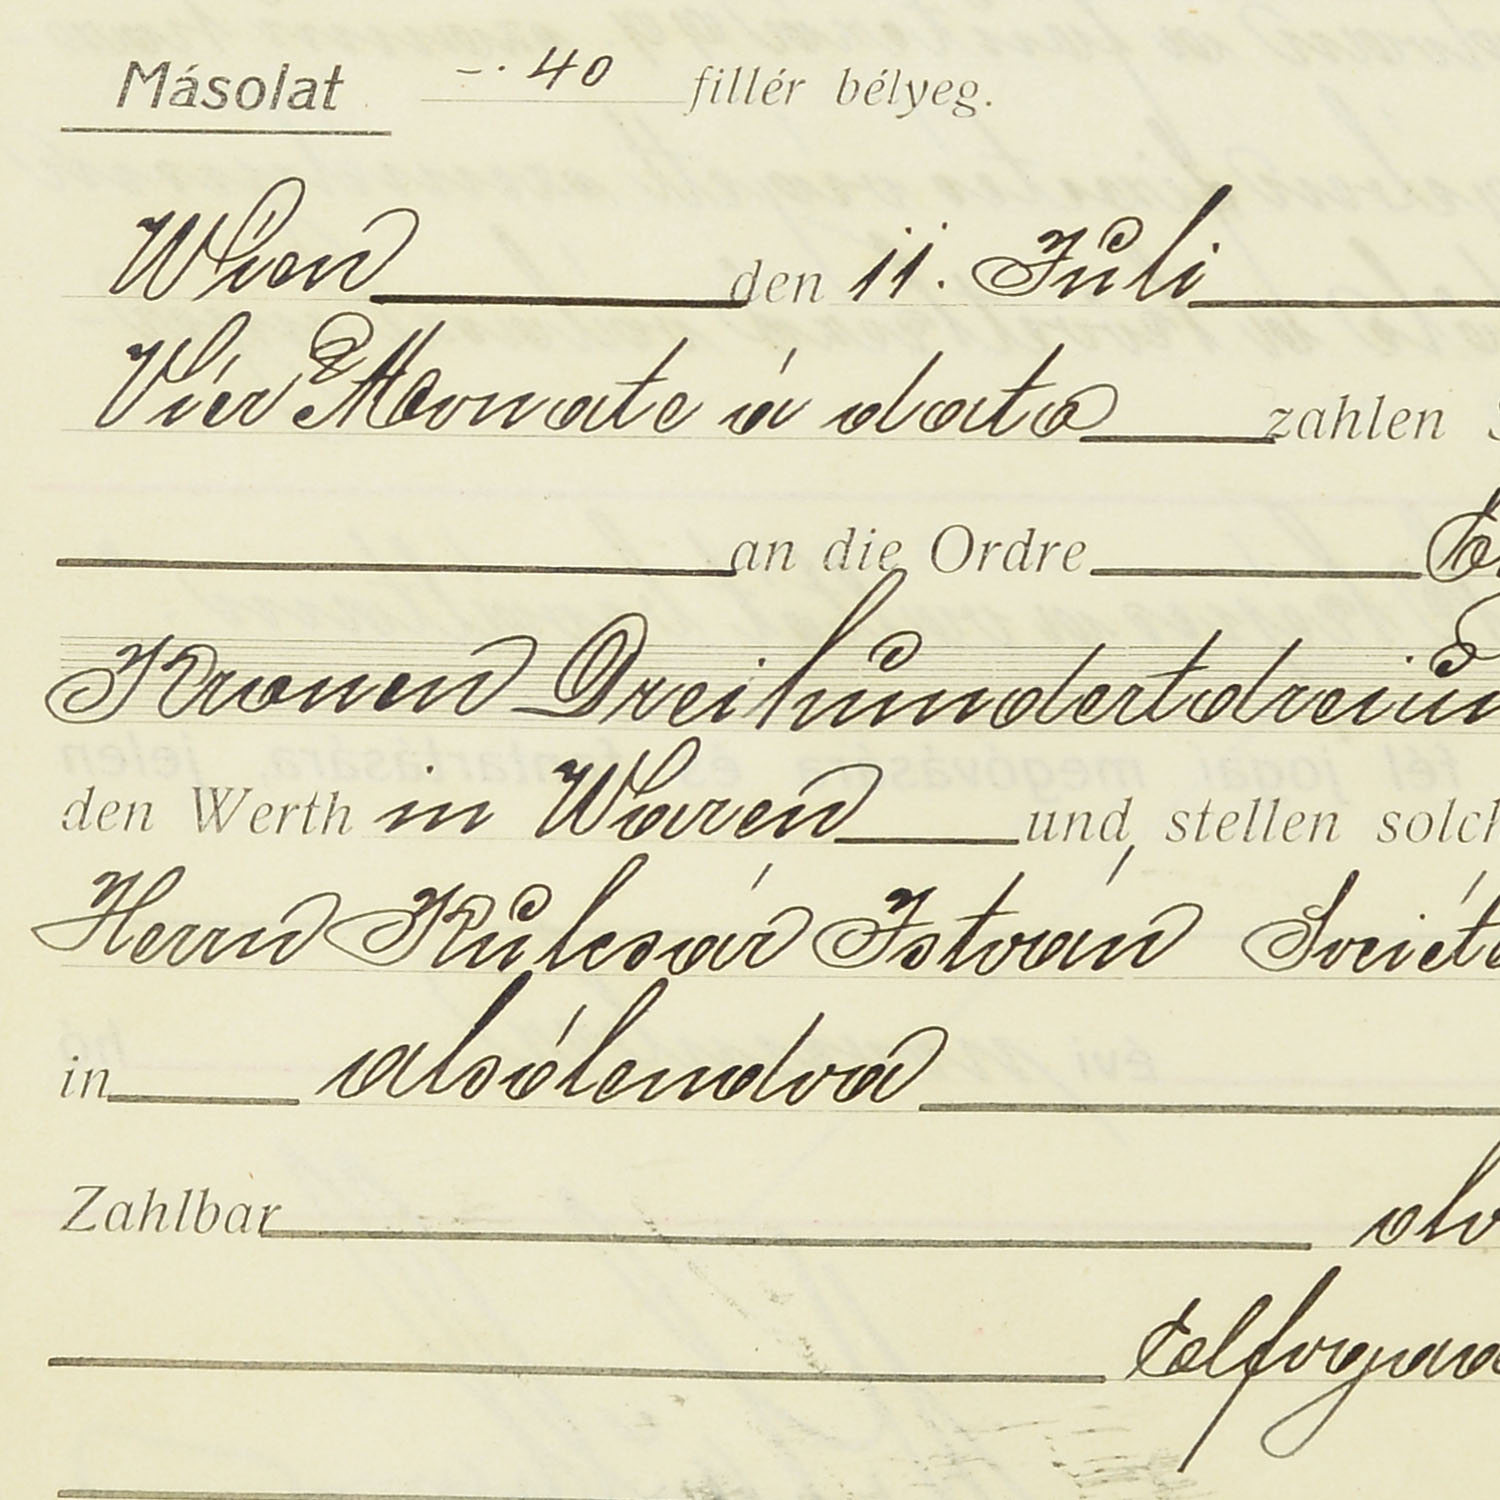 Másolat -.40 fillér bélyeg.
Wien den 11. Juli
Vier Monate á dato zahlen
an die Ordre
Kronen Dreihundertdreiun
den Werth in Waren und stellen solch
Herrn Kulcsár István Sociét
in alsólendva
Zahlbar
Elfogad